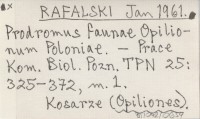 x
RAFALSKI Jan 1961.
Prodromus faunae Opilio-
num Poloniae. — Prace
Kom. Biol. Pozn. TPN 25:
325-372, m. 1.
Kosarze (Opiliones).